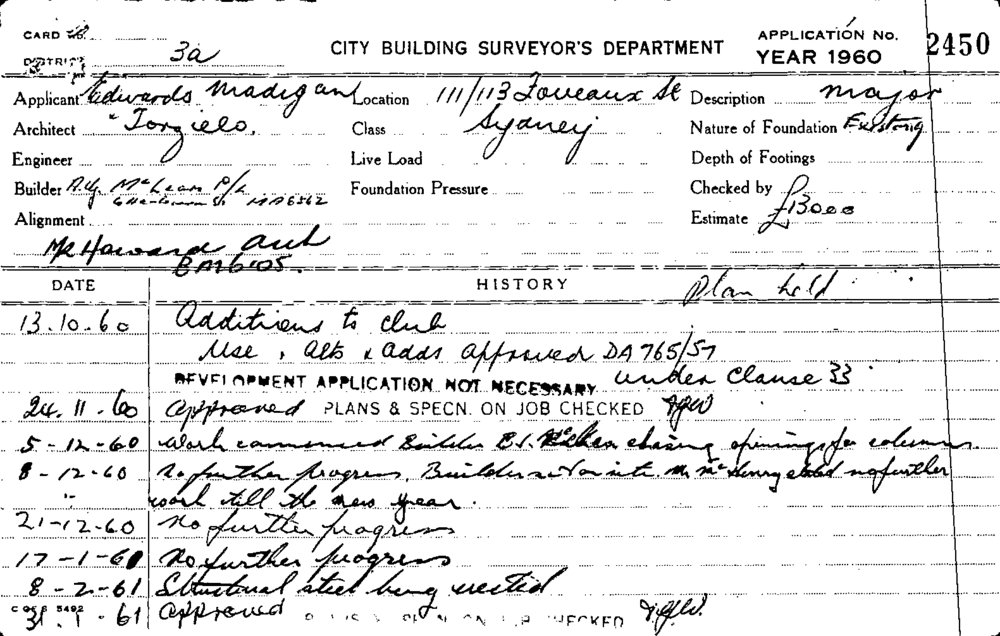 CARD No.
DISTRICT 3a CITY BUILDING SURVEYOR'S DEPARTMENT APPLICATION No. YEAR 1960 2450
Applicant Edwards Madigan Location 111/113 Foveaux St Description Major
Architect " Torzillo. Class Sydney Nature of Foundation Existing
Engineer Live Load Depth of Footings
Builder McLean P/L Foundation Pressure Checked by
MA6562
Alignment Estimate £13000
Mr Howard Arch
BM6105.
DATE HISTORY Plan held
13.10.60 Additions to club
Use, Alts & Adds approved DA 765/57
DEVELOPMENT APPLICATION NOT NECESSARY under Clause 33
24.11.60 Approved PLANS & SPECN. ON JOB CHECKED
5-12-60 Work commenced Builder chasing openings for columns.
8-12-60 No further progress. Builder not on site. Mr McHenry stated no further
" work till the new year.
21-12-60 No further progress
17-1-61 No further progress
8-2-61 Structural steel being erected
31.1.61 Approved CHECKED